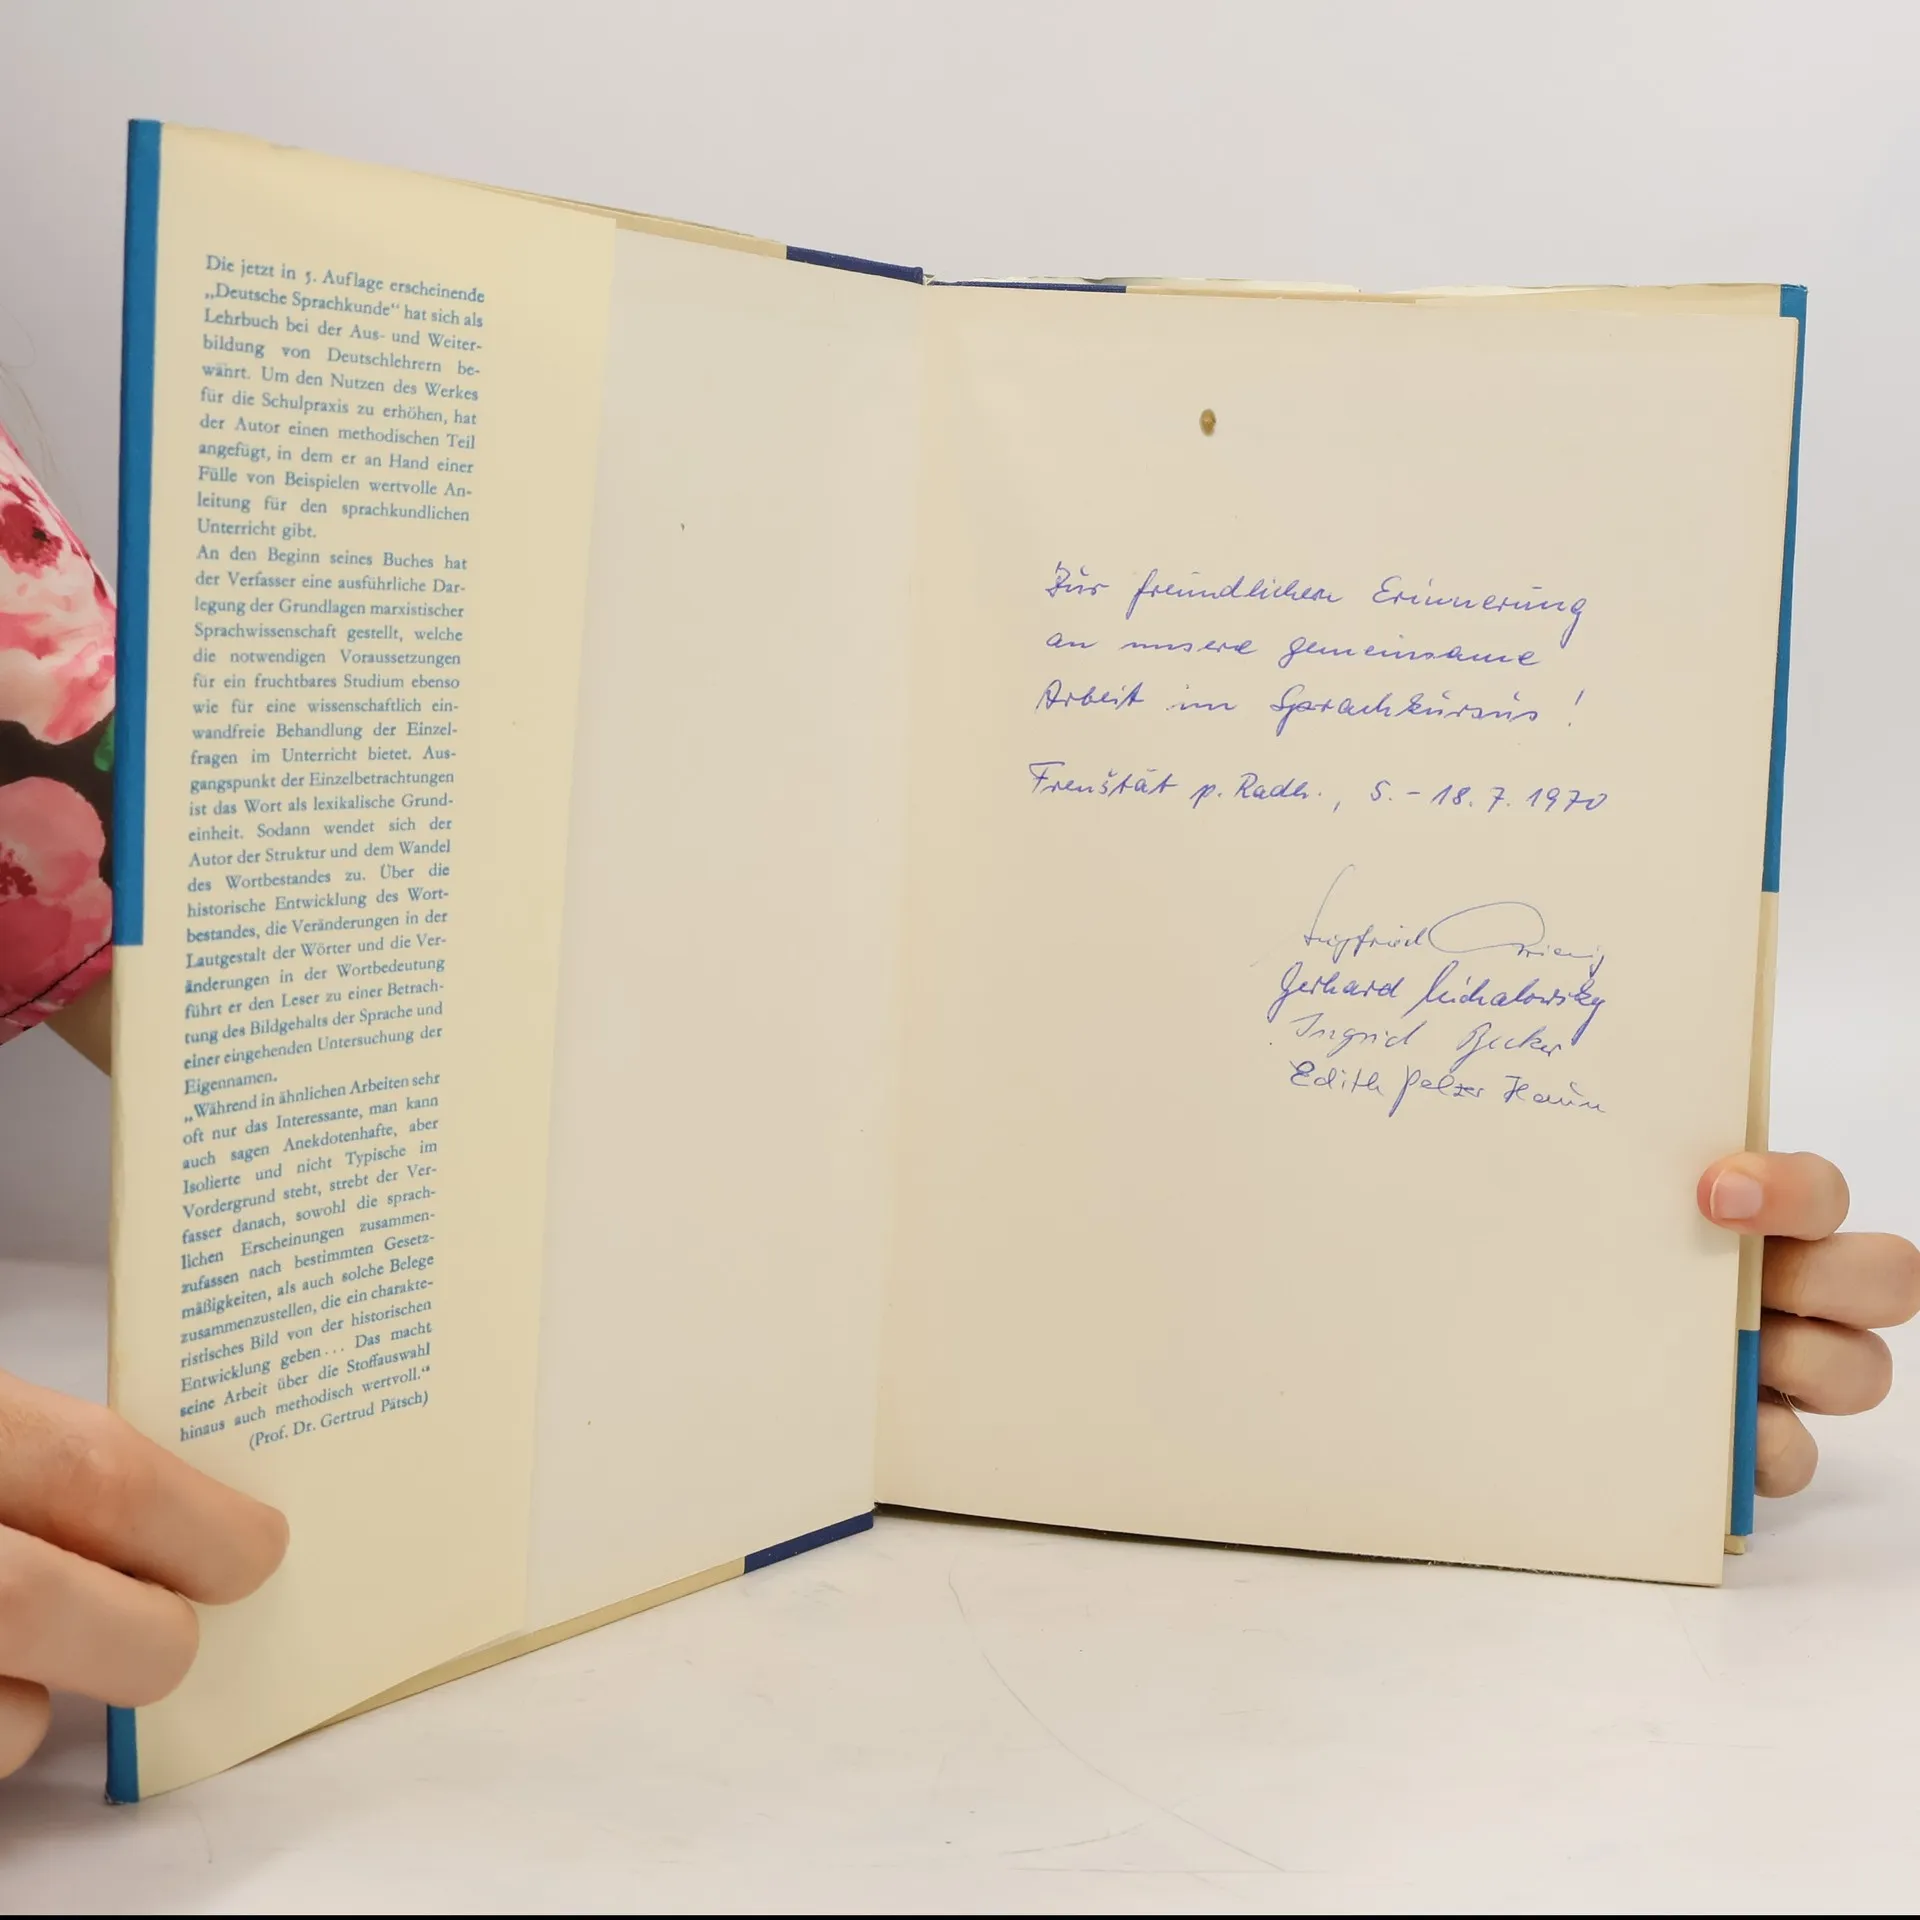 Die jetzt in 5. Auflage erscheinende
„Deutsche Sprachkunde“ hat sich als
Lehrbuch bei der Aus- und Weiter-
bildung von Deutschlehrern be-
währt. Um den Nutzen des Werkes
für die Schulpraxis zu erhöhen, hat
der Autor einen methodischen Teil
angefügt, in dem er an Hand einer
Fülle von Beispielen wertvolle An-
leitung für den sprachkundlichen
Unterricht gibt.
An den Beginn seines Buches hat
der Verfasser eine ausführliche Dar-
legung der Grundlagen marxistischer
Sprachwissenschaft gestellt, welche
die notwendigen Voraussetzungen
für ein fruchtbares Studium ebenso
wie für eine wissenschaftlich ein-
wandfreie Behandlung der Einzel-
fragen im Unterricht bietet. Aus-
gangspunkt der Einzelbetrachtungen
ist das Wort als lexikalische Grund-
einheit. Sodann wendet sich der
Autor der Struktur und dem Wandel
des Wortbestandes zu. Über die
historische Entwicklung des Wort-
bestandes, die Veränderungen in der
Lautgestalt der Wörter und die Ver-
änderungen in der Wortbedeutung
führt er den Leser zu einer Betrach-
tung des Bildgehalts der Sprache und
einer eingehenden Untersuchung der
Eigennamen.
„Während in ähnlichen Arbeiten sehr
oft nur das Interessante, man kann
auch sagen Anekdotenhafte, aber
Isolierte und nicht Typische im
Vordergrund steht, strebt der Ver-
fasser danach, sowohl die sprach-
lichen Erscheinungen zusammen-
zufassen nach bestimmten Gesetz-
mäßigkeiten, als auch solche Belege
zusammenzustellen, die ein charakte-
ristisches Bild von der historischen
Entwicklung geben... Das macht
seine Arbeit über die Stoffauswahl
hinaus auch methodisch wertvoll.“
(Prof. Dr. Gertrud Pätsch)
Zur freundlichen Erinnerung
an unsere gemeinsame
Arbeit im Sprachkursus!
Frenštát p. Radh., 5. - 18. 7. 1970
Siegfried
Gerhard Michalowsky
Ingrid Becker
Edith Pelzer Haun